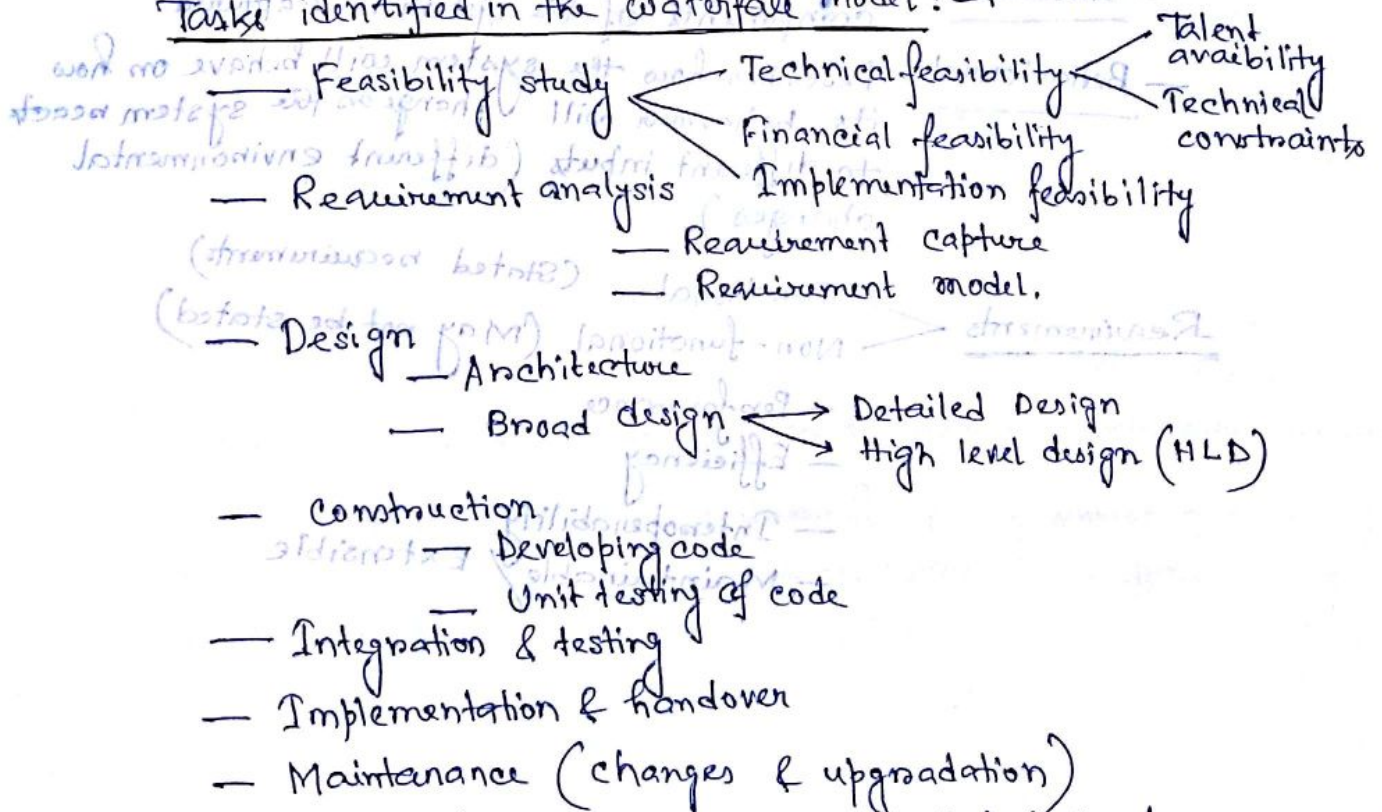 Tasks identified in the waterfall model:
— Feasibility study — Technical feasibility — Talent avaibility
Technical constraints
Financial feasibility
Implementation feasibility
— Requirement analysis
— Requirement capture
— Requirement model.
— Design
— Architecture
— Broad design → Detailed Design
→ High level design (HLD)
— Construction
— Developing code
— Unit testing of code
— Integration & testing
— Implementation & handover
— Maintenance (changes & upgradation)